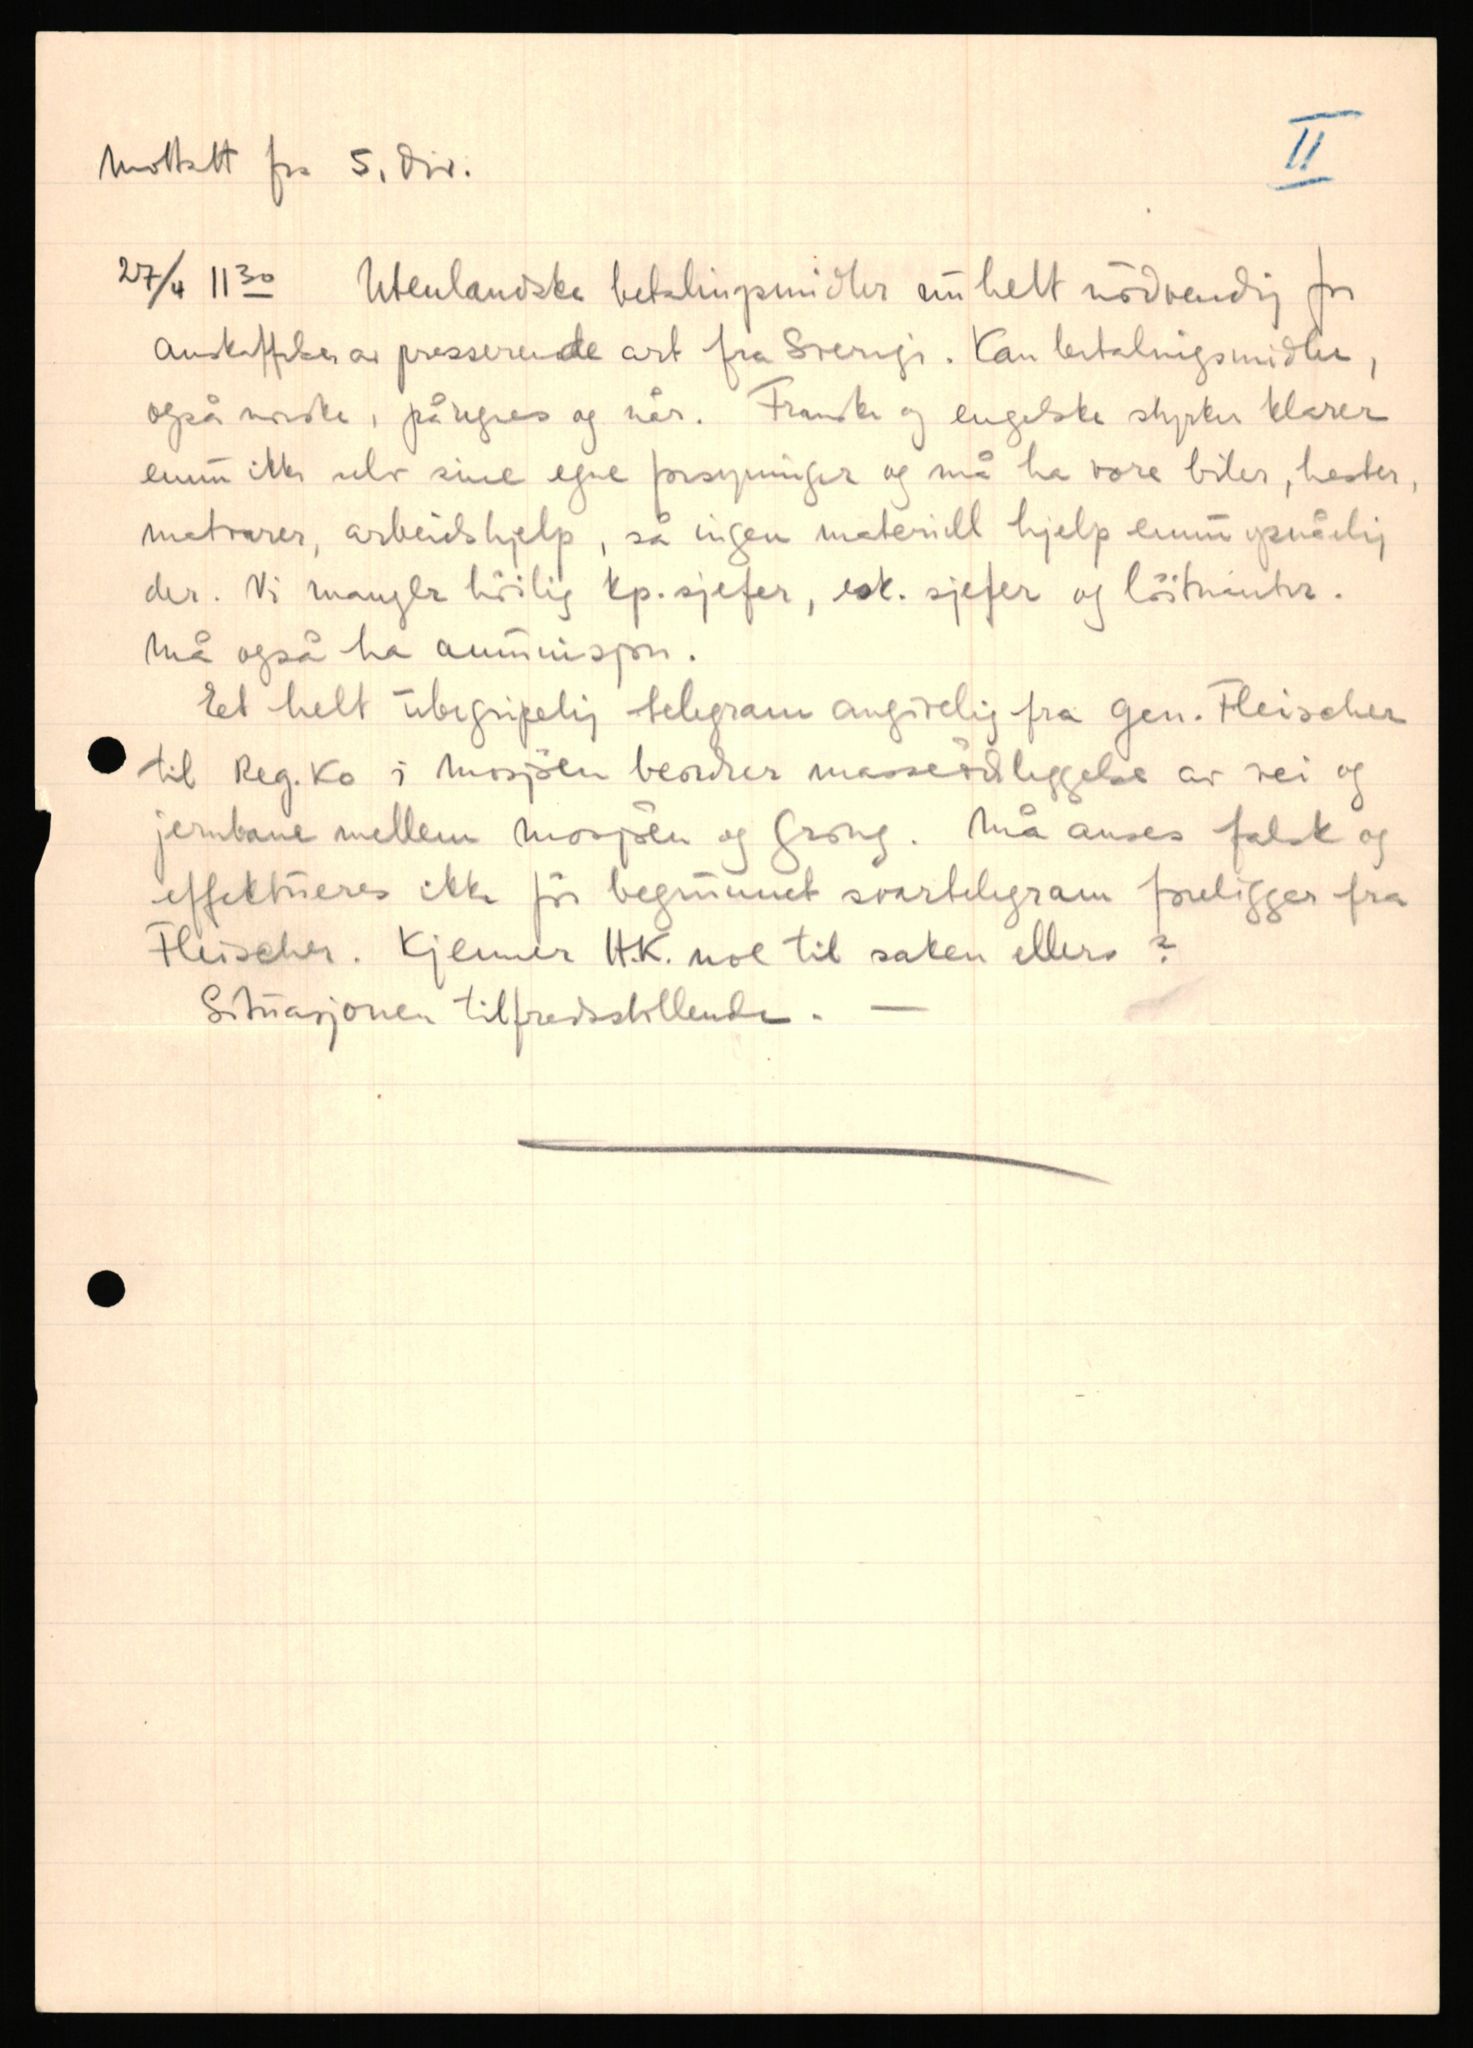 II
Mottatt fra 5. Div.
27/4 11 30 Utenlandske betalingsmidler nu helt nödvendig for
anskaffelser av presserende art fra Sverige. Kan betalingsmidler,
også norske, påregnes og når. Franske og engelske styrker klarer
ennu ikke selv sine egne forsyninger og må ha våre biler, hester,
matvarer, arbeidshjelp, så ingen materiell hjelp ennu opnåelig
der. Vi mangler höilig kp. sjefer, esk. sjefer og löitnanter.
Må også ha ammunisjon.
Et helt ubegripelig telegram angivelig fra Gen. Fleischer
til Reg. Ko i Mosjöen beordrer masseödeleggelse av vei og
jernbane mellem Mosjöen og Grong. Må anses falsk og
effektueres ikke för begrunnet svartelegram foreligger fra
Fleischer. Kjenner H.K. noe til saken ellers?
Situasjonen tilfredsstillende. —